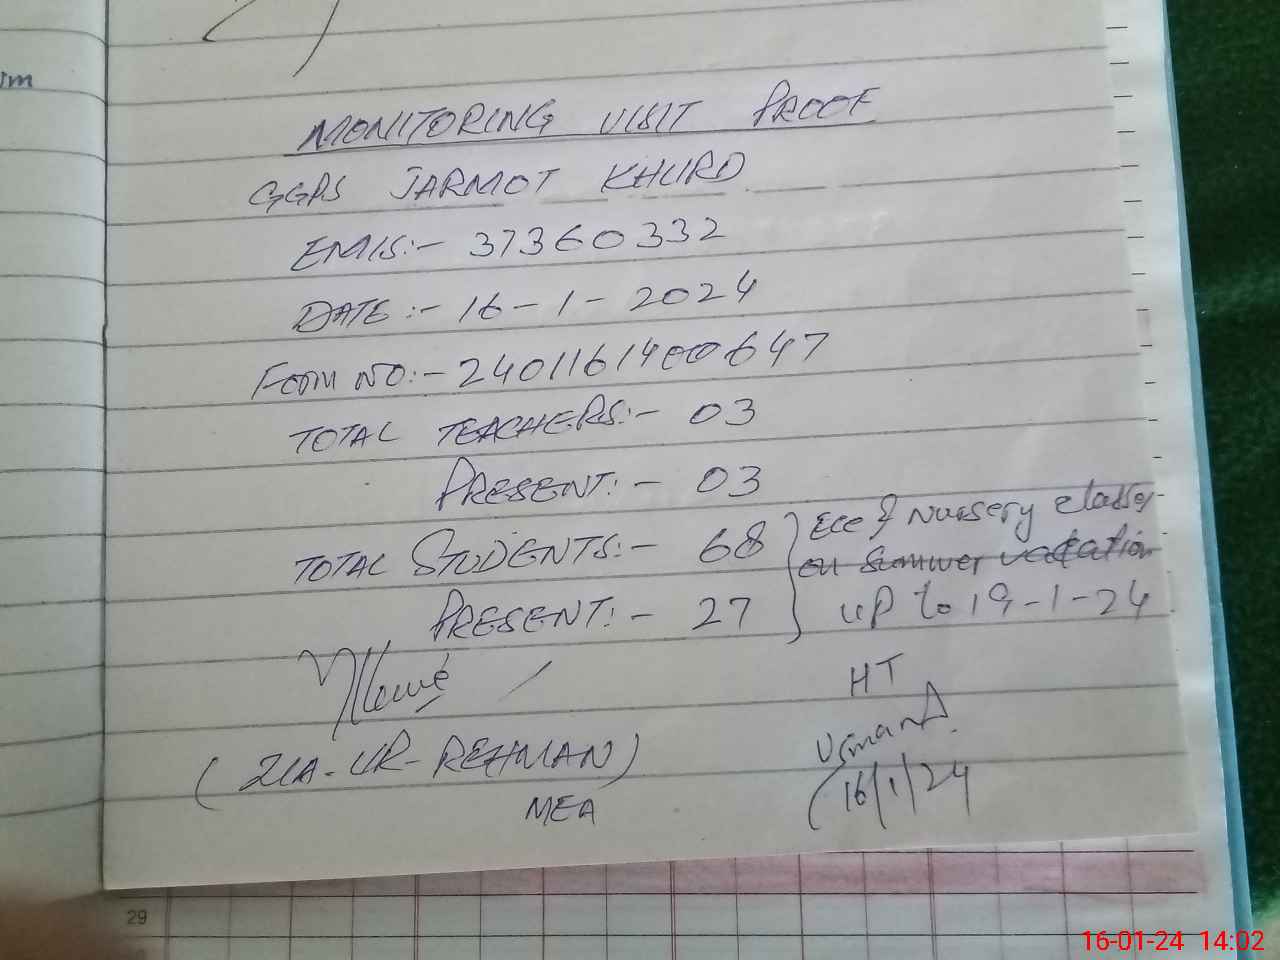 MONITORING VISIT PROOF
GGPS JARMOT KHURD
EMIS:- 37360332
DATE:- 16-1-2024
Form NO:- 2401161400647
TOTAL TEACHERS:- 03
PRESENT:- 03
TOTAL STUDENTS:- 68 } Ece & Nursery classes
on Summer vacation
PRESENT:- 27 up to 19-1-24
HT
Usman A
(ZIA-UR-REHMAN)
MEA
16/1/24
29
16-01-24 14:02